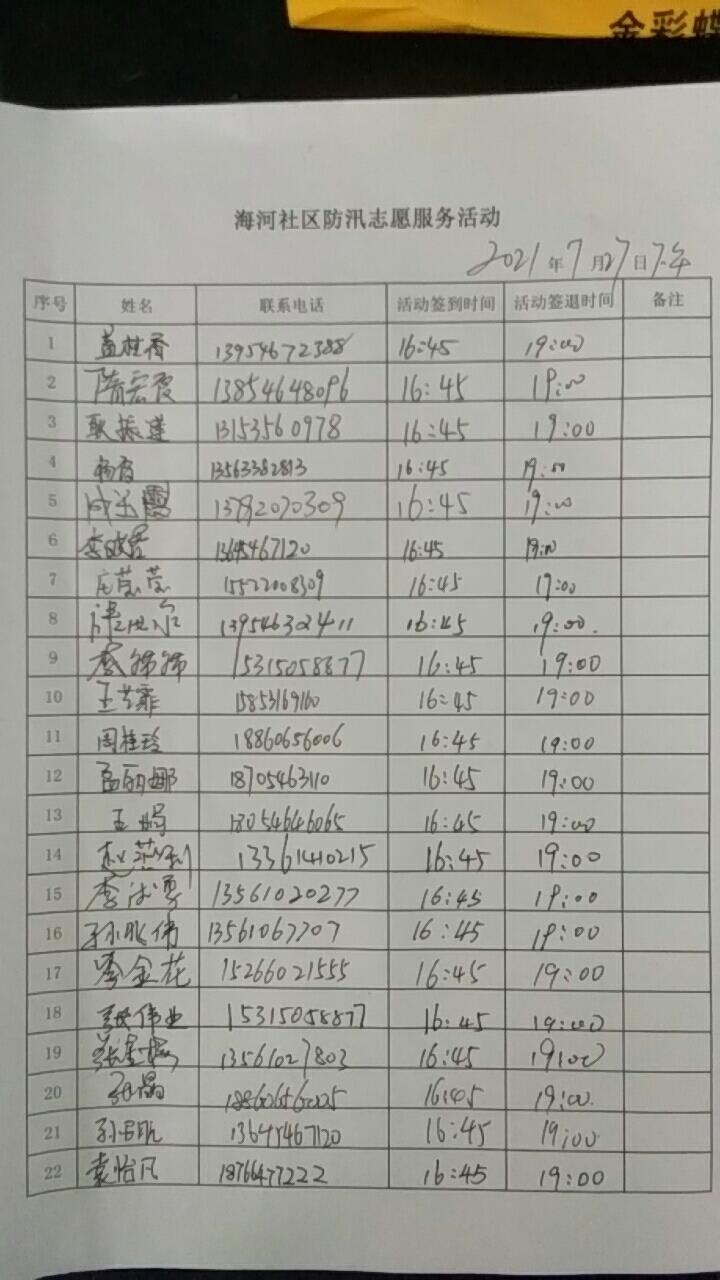 金彩蝶
海河社区防汛志愿服务活动
2021年7月27日下午
序号 姓名 联系电话 活动签到时间 活动签退时间 备注
1 孟桂香 13954672388 16:45 19:00
2 隋宏霞 13854648096 16:45 19:00
3 耿振莲 13153560978 16:45 19:00
4 杨霞 13563382813 16:45 19:00
5 13792070309 16:45 19:00
6 13645467120 16:45 19:00
7 庄莹莹 15522008309 16:45 19:00
8 13954632411 16:45 19:00.
9 李锦锦 15315058877 16:45 19:00
10 王芸霏 15853169160 16:45 19:00
11 周桂玲 18860656006 16:45 19:00
12 孟丽娜 18705463110 16:45 19:00
13 王娟 18054646065 16:45 19:00
14 赵燕利 13361410215 16:45 19:00
15 李淑勇 13561020277 16:45 19:00
16 孙兆伟 13561067707 16:45 19:00
17 李金花 15266021555 16:45 19:00
18 张伟业 15315058877 16:45 19:00
19 13561027803 16:45 19:00
20 孙晶 18860656005 16:45 19:00.
21 13645467120 16:45 19:00
22 袁怡凡 18766477222 16:45 19:00